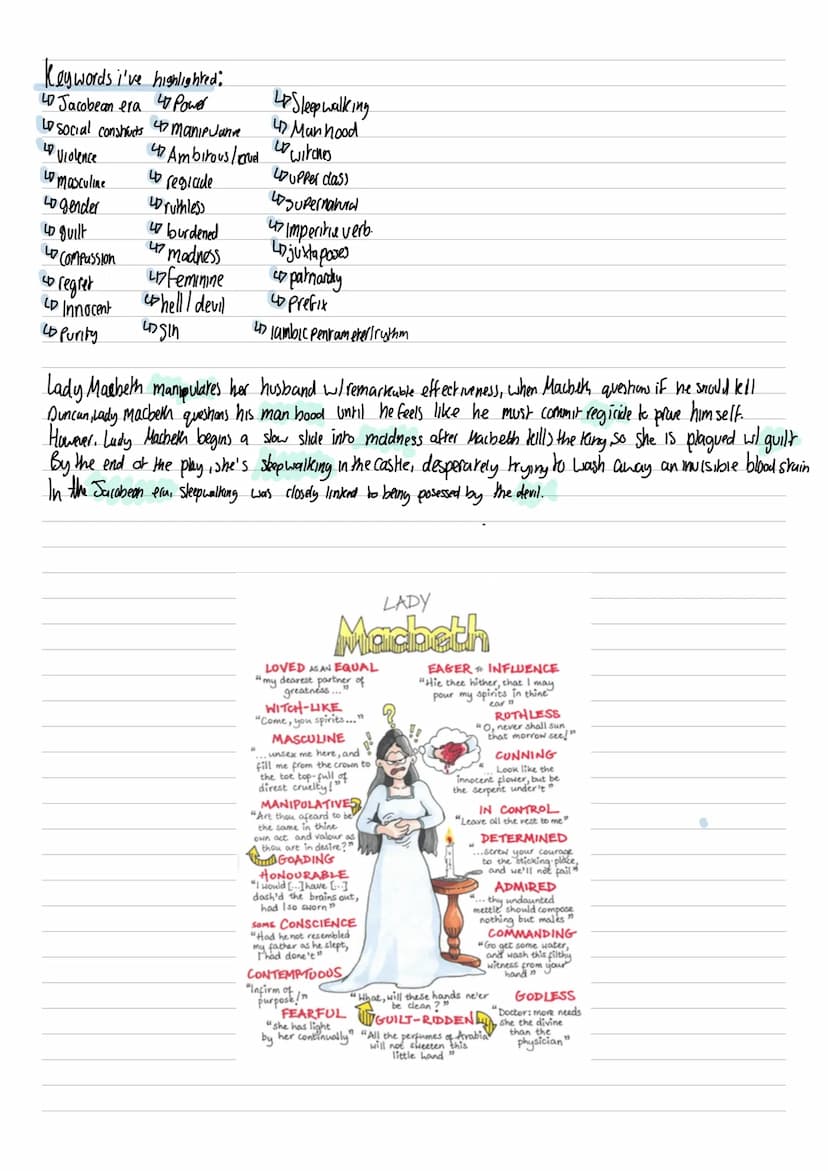 Keywords i've highlighted:
↳ Jacobean era ↳ Power ↳ Sleepwalking
↳ social constructs ↳ manipulative ↳ Manhood
↳ Violence ↳ Ambitous/cruel ↳ witches
↳ masculine ↳ regicide ↳ upper class
↳ gender ↳ ruthless ↳ supernatural
↳ guilt ↳ burdened ↳ Imperitive verb.
↳ compassion ↳ madness ↳ juxtaposes
↳ regret ↳ Feminine ↳ patriarchy
↳ Innocent ↳ hell/devil ↳ Prefix
↳ Purity ↳ Sin ↳ Iambic pentrameter/rythm
Lady Macbeth manipulates her husband w/ remarkable effectiveness, when Macbeth questions if he should kill
Duncan, Lady Macbeth questions his man hood until he feels like he must commit regicide to prove himself.
However, Lady Macbeth begins a slow slide into madness after Macbeth kills the King, so she is plagued w/ guilt
By the end of the play, she's sleepwalking in the castle, desperately trying to wash away an invisible blood stain
In the Jacobean era, sleepwalking was closely linked to being posessed by the devil.
LADY
Macbeth
LOVED AS AN EQUAL
"my dearest partner of
greatness..."
WITCH-LIKE
"Come, you spirits..."
MASCULINE
"...unsex me here, and
fill me from the crown to
the toe top-full of
direst cruelty!"
MANIPULATIVE
"Art thou afeard to be
the same in thine
own act and valour as
thou art in desire?"
GOADING
HONOURABLE
"I would [...] have [...]
dash'd the brains out,
had I so sworn"
SOME CONSCIENCE
"Had he not resembled
my father as he slept,
I had done't"
CONTEMPTUOUS
"Infirm of
purpose!"
FEARFUL
"she has light
by her continually"
EAGER TO INFLUENCE
"Hie thee hither, that I may
pour my spirits in thine
ear"
RUTHLESS
"O, never shall sun
that morrow see!"
CUNNING
"... Look like the
innocent flower, but be
the serpent under't"
IN CONTROL
"Leave all the rest to me"
DETERMINED
"...screw your courage
to the sticking-place,
and we'll not fail"
ADMIRED
"... thy undaunted
mettle should compose
nothing but males"
COMMANDING
"Go get some water,
and wash this filthy
witness from your
hand"
GODLESS
"Doctor: more needs
she the divine
than the
physician"
"What, will these hands ne'er
be clean?"
GUILT-RIDDEN
"All the perfumes of Arabia
will not sweeten this
little hand"